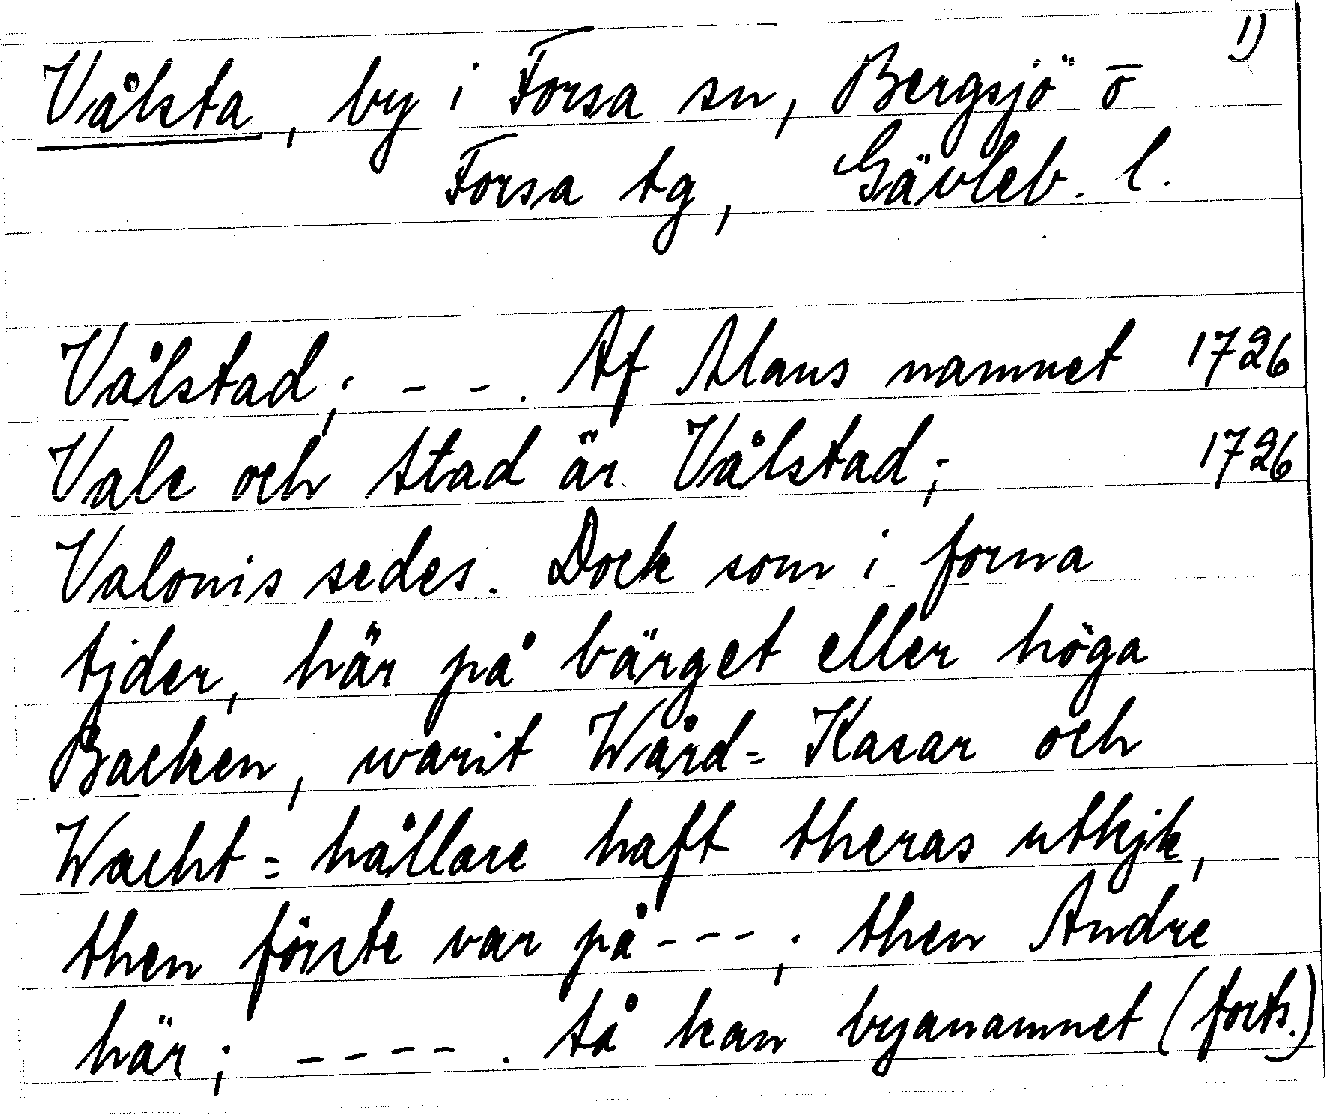 1)
Vålsta, by i Forsa sn, Bergsjö o
Forsa tg, Gävleb. l.
Vålstad; - - . Af Mans namnet 1726
Vale och stad är Vålstad; 1726
Valonis sedes. Dock som i forna
tjder, här på bärget eller höga
Backen, warit Wård= Kasar och
Wacht= hållare haft theras utkjk,
then förste var på - - - ; then Andre
här; - - - - . tå kan byanamnet (forts.)